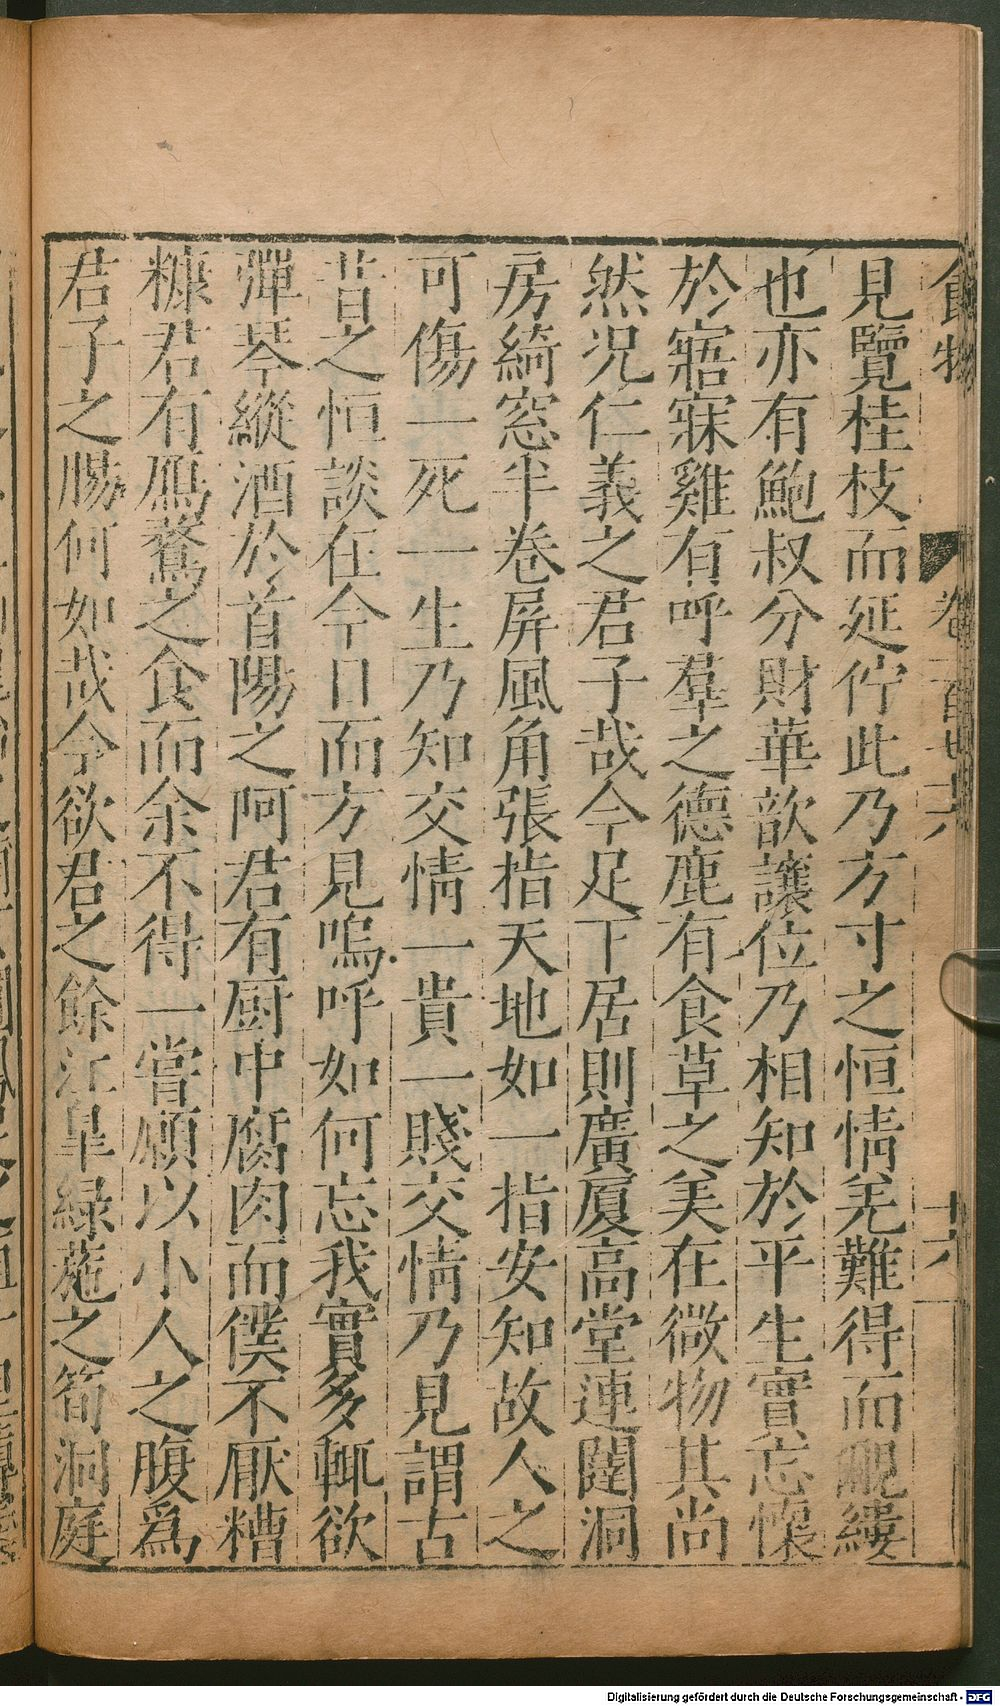 食物 卷一百廿六 十六
見覽桂枝而延佇此乃方寸之恒情羌難得而覼縷
也亦有鮑叔分財華歆讓位乃相知於平生實忘懷
於寤寐雞有呼羣之德鹿有食草之美在微物其尚
然况仁義之君子哉今足下居則廣厦高堂連闥洞
房綺窓半卷屏風角張指天地如一指安知故人之
可傷一死一生乃知交情一貴一賤交情乃見謂古
昔之恒談在今日而方見嗚呼如何忘我實多輒欲
彈琴縱酒於首陽之阿君有厨中腐肉而僕不厭糟
糠君有鴈鶩之食而余不得一嘗願以小人之腹爲
君子之賜何如哉今欲君之餘江臯綠葹之筍洞庭
Digitalisierung gefördert durch die Deutsche Forschungsgemeinschaft - DFG